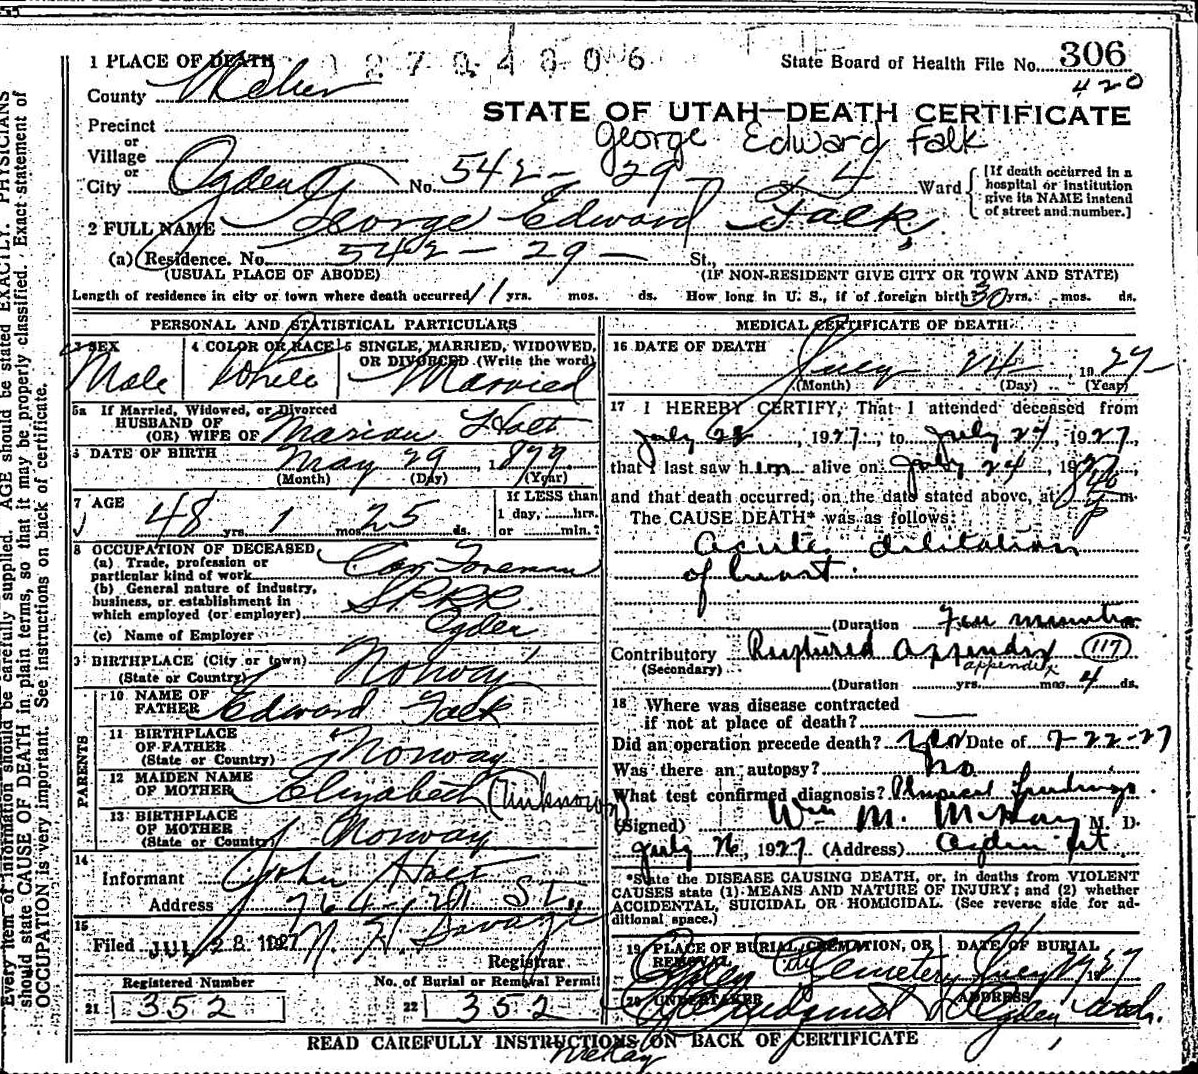 1 PLACE OF DEATH 0 2 7 0 4 0 0 6 State Board of Health File No. 306
County Weber 420
STATE OF UTAH—DEATH CERTIFICATE
Precinct
or George Edward Falk
Village
or
City Ogden No. 542 - 29 - St. 4 Ward [If death occurred in a hospital or institution give its NAME instead of street and number.]
2 FULL NAME George Edward Falk
(a) Residence. No. 542 - 29 - St.,
(USUAL PLACE OF ABODE) (IF NON-RESIDENT GIVE CITY OR TOWN AND STATE)
Length of residence in city or town where death occurred 11 yrs. mos. ds. How long in U. S., if of foreign birth? 30 yrs. mos. ds.
PERSONAL AND STATISTICAL PARTICULARS
3 SEX
Male
4 COLOR OR RACE
White
5 SINGLE, MARRIED, WIDOWED, OR DIVORCED (Write the word)
Married
5a If Married, Widowed, or Divorced
HUSBAND OF
(OR) WIFE OF Marian Holt
6 DATE OF BIRTH May 29, 1879
(Month) (Day) (Year)
7 AGE
48 yrs. 1 mos. 25 ds.
If LESS than
1 day, hrs.
or min.
8 OCCUPATION OF DECEASED
(a) Trade, profession or
particular kind of work Car Foreman
(b) General nature of industry,
business, or establishment in
which employed (or employer) S.P.R.R.
(c) Name of Employer Ogden
9 BIRTHPLACE (City or town)
(State or Country) Norway
PARENTS
10 NAME OF
FATHER Edward Falk
11 BIRTHPLACE
OF FATHER
(State or Country) Norway
12 MAIDEN NAME
OF MOTHER Elizabeth (Unknown)
13 BIRTHPLACE
OF MOTHER
(State or Country) Norway
14
Informant John Holt
Address 764 - 21 St.,
15
Filed JUL 28 1927
Registrar
Registered Number
21 352
No. of Burial or Removal Permit
22 352
MEDICAL CERTIFICATE OF DEATH
16 DATE OF DEATH
July 24 1927
(Month) (Day) (Year)
17 I HEREBY CERTIFY, That I attended deceased from
July 22, 1927, to July 24, 1927,
that I last saw him alive on July 24, 1927,
and that death occurred, on the date stated above, at m.
The CAUSE DEATH* was as follows:
acute dilitation
of heart.
(Duration Few minutes
Contributory Ruptured appendix 117
(Secondary) appendix
(Duration yrs. mos. 4 ds.
18 Where was disease contracted
if not at place of death?
Did an operation precede death? Yes Date of 7-22-27
Was there an autopsy? no
What test confirmed diagnosis? Physical findings.
(Signed) Wm M. McKay M. D.
July 26, 1927 (Address) Ogden Ut.
*State the DISEASE CAUSING DEATH, or, in deaths from VIOLENT
CAUSES state (1) MEANS AND NATURE OF INJURY; and (2) whether
ACCIDENTAL, SUICIDAL OR HOMICIDAL. (See reverse side for ad-
ditional space.)
19 PLACE OF BURIAL, CREMATION, OR REMOVAL
Ogden City Cemetery
DATE OF BURIAL
July 1927
20 UNDERTAKER
Lindquist
ADDRESS
Ogden Utah.
READ CAREFULLY INSTRUCTIONS ON BACK OF CERTIFICATE
McKay
Every item of information should be carefully supplied. AGE should be stated EXACTLY. PHYSICIANS
should state CAUSE OF DEATH in plain terms, so that it may be properly classified. Exact statement of
OCCUPATION is very important. See instructions on back of certificate.